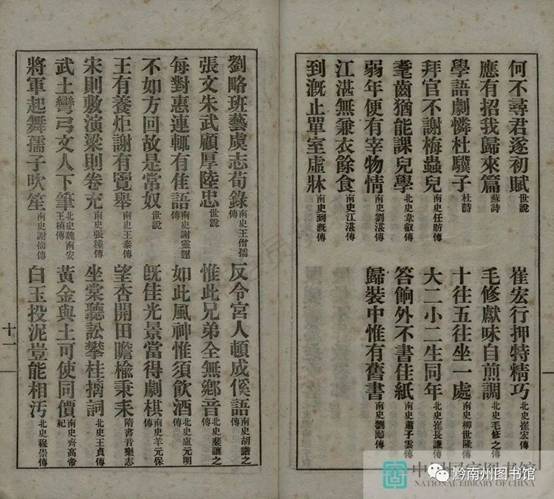 何不尋君遂初賦 世說
應有招我歸來篇 蘇詩
學語劇憐杜驥子 杜詩
拜官不謝梅蟲兒 南史任昉傳
耄齒猶能課兒學 韋叡傳
弱年便有宰物情 南史劉湛傳
江湛無兼衣餘食 南史江湛傳
到溉止單室虛牀 南史到溉傳
崔宏行押特精巧 北史崔宏傳
毛修獻味自煎調 北史毛修之傳
十往五往坐一處 南史柳世隆傳
大二小二生同年 北史崔長謙傳
答餉外不書佳紙 南史蕭子雲傳
歸裝中惟有舊書 南史劉傳
劉略班藝虞志荀錄 南史王僧孺傳
張文朱武顧厚陸忠 世說
每對惠連輒有佳語 南史謝靈運傳
不如方回故是常奴 世說
王有養炬謝有覽舉 南史王泰傳
宋則敷演梁則卷充 南史張種傳
武士彎弓文人下筆 北史魏南安王楨傳
將軍起舞孺子吹笙 南史謝傳
反令宮人頓成傒語 南史胡諧之傳
惟此兄弟全無鄉音 北史裴讓之傳
如此風神惟須飲酒 北史盧元明傳
既佳光景當得劇棋 南史羊元保傳
望杏開田瞻榆秉耒 隋書音樂志
坐棠聽訟攀桂摛詞 北史王貞傳
黃金與土可使同價 南史齊高帝紀
白玉投泥豈能相汚 北史傳
十一
黔南州图书馆
NATIONAL LIBRARY OF CHINA